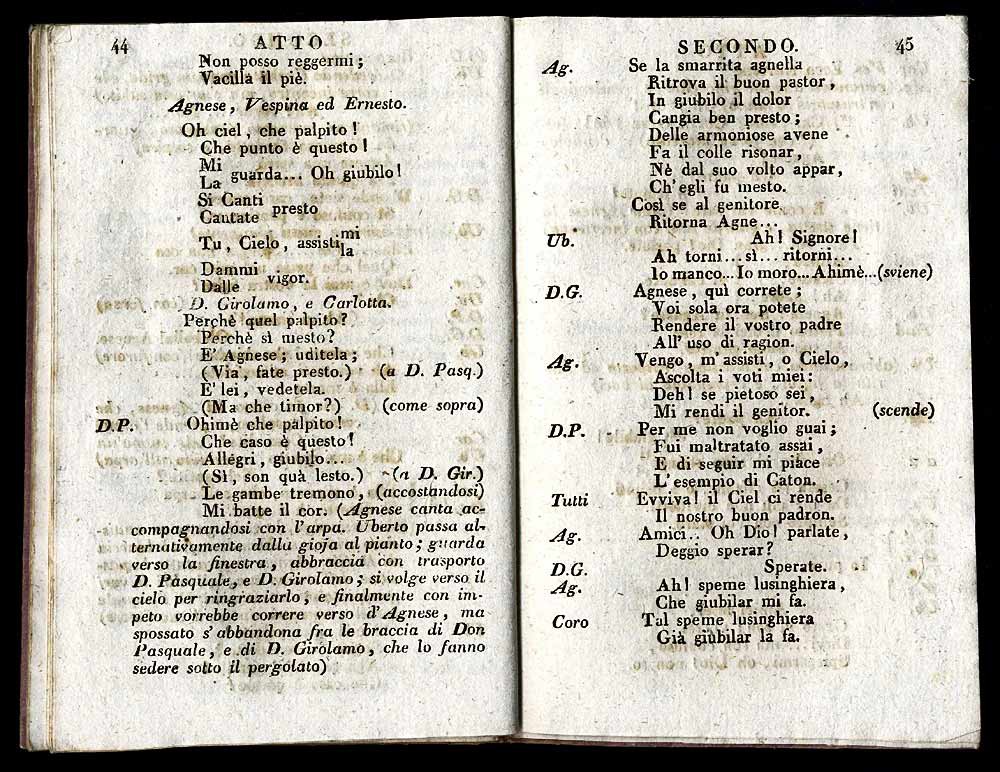 44
ATTO
Non posso reggermi ;
Vacilla il piè.
Agnese , Vespina ed Ernesto.
Oh ciel , che palpito !
Che punto è questo !
Mi
La guarda... Oh giubilo !
Si Canti
Cantate presto
Tu , Cielo , assisti mi
la
Dammi
Dalle vigor.
D. Girolamo, e Carlotta.
Perchè quel palpito ?
Perchè sì mesto ?
E' Agnese ; uditela ;
(Via , fate presto.) (a D. Pasq.)
E' lei , vedetela.
(Ma che timor?) (come sopra)
D.P. Ohimè che palpito !
Che caso è questo !
Allegri , giubilo...
(Sì , son quà lesto.) (a D. Gir.)
Le gambe tremono, (accostandosi)
Mi batte il cor. (Agnese canta ac-
compagnandosi con l'arpa. Uberto passa al-
ternativamente dalla gioja al pianto ; guarda
verso la finestra , abbraccia con trasporto
D. Pasquale, e D. Girolamo ; si volge verso il
cielo per ringraziarlo , e finalmente con im-
peto vorrebbe correre verso d'Agnese , ma
spossato s'abbandona fra le braccia di Don
Pasquale, e di D. Girolamo, che lo fanno
sedere sotto il pergolato)
SECONDO.
45
Ag. Se la smarrita agnella
Ritrova il buon pastor ,
In giubilo il dolor
Cangia ben presto ;
Delle armoniose avene
Fa il colle risonar,
Nè dal suo volto appar,
Ch'egli fu mesto.
Così se al genitore
Ritorna Agne...
Ub. Ah ! Signore !
Ah torni... sì... ritorni...
Io manco... Io moro... Ahimè...(sviene)
D.G. Agnese , quì correte ;
Voi sola ora potete
Rendere il vostro padre
All' uso di ragion.
Ag. Vengo, m'assisti, o Cielo,
Ascolta i voti miei :
Deh ! se pietoso sei ,
Mi rendi il genitor. (scende)
D.P. Per me non voglio guai ;
Fui maltratato assai ,
E di seguir mi piace
L'esempio di Caton.
Tutti Evviva ! il Ciel ci rende
Il nostro buon padron.
Ag. Amici.. Oh Dio ! parlate,
Deggio sperar ?
D.G. Sperate.
Ag. Ah ! speme lusinghiera ,
Che giubilar mi fa.
Coro Tal speme lusinghiera
Già giubilar la fa.